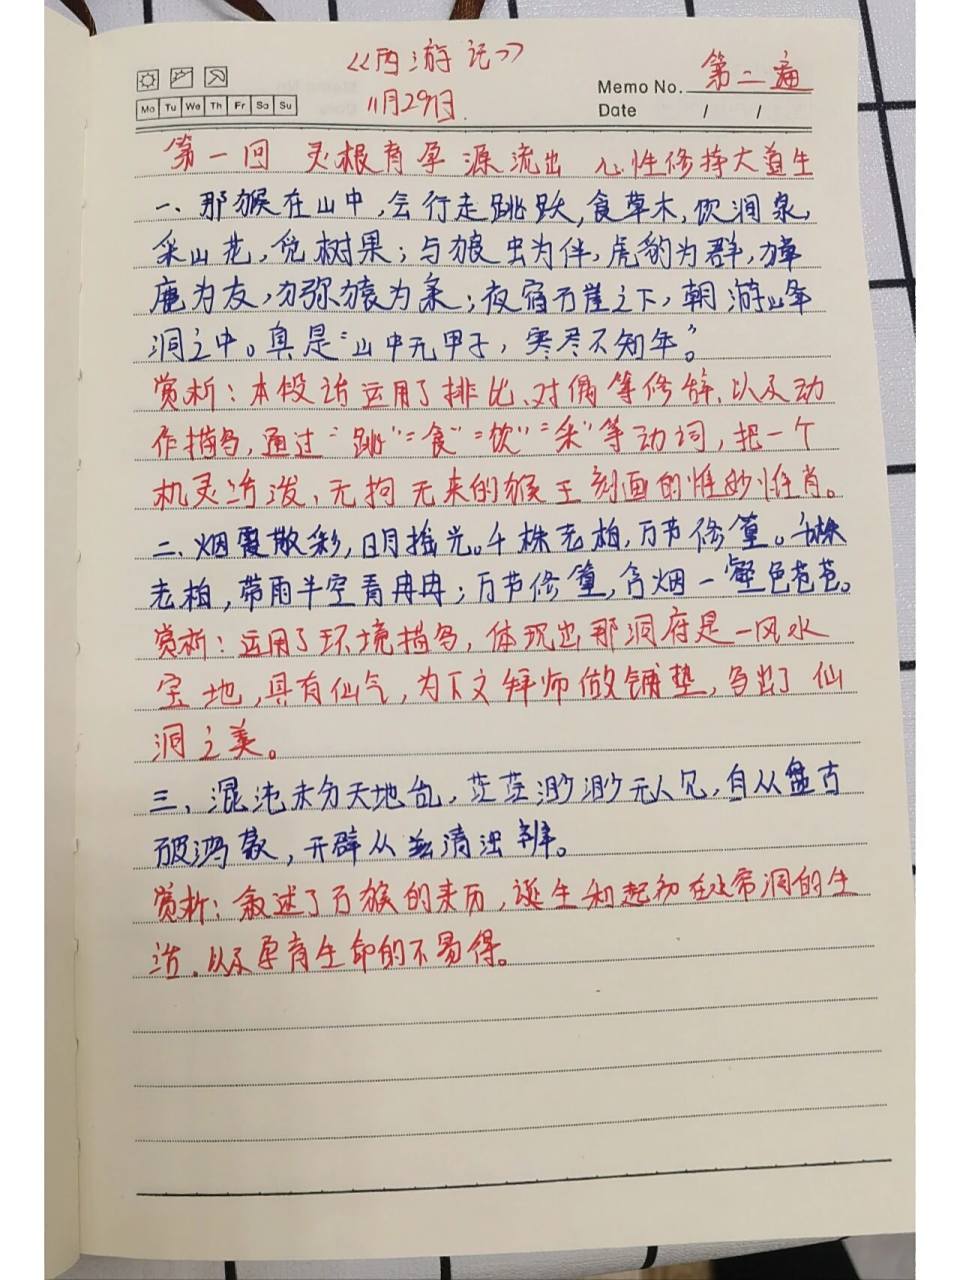 《西游记》
Memo No. 第二遍
Mo Tu We Th Fr Sa Su
11月29日.
Date / /
第一回 灵根育孕源流出 心性修持大道生
一、那猴在山中,会行走跳跃,食草木,饮涧泉,
采山花,觅树果;与狼虫为伴,虎豹为群,獐
鹿为友,猕猿为亲;夜宿石崖之下,朝游峰
洞之中。真是“山中无甲子,寒尽不知年。”
赏析:本段话运用了排比、对偶等修辞,以及动
作描写,通过“跳”“食”“饮”“采”等动词,把一个
机灵活泼、无拘无束的猴王刻画的惟妙惟肖。
二、烟霞散彩,日月摇光。千株老柏,万节修篁。千株
老柏,带雨半空青冉冉;万节修篁,含烟一壑色苍苍。
赏析:运用了环境描写,体现出那洞府是一风水
宝地,具有仙气,为下文拜师做铺垫,写出了仙
洞之美。
三、混沌未分天地乱,茫茫渺渺无人见,自从盘古
破鸿蒙,开辟从兹清浊辨。
赏析:叙述了石猴的来历,诞生和起初在水帘洞的生
活.以及孕育生命的不易得。